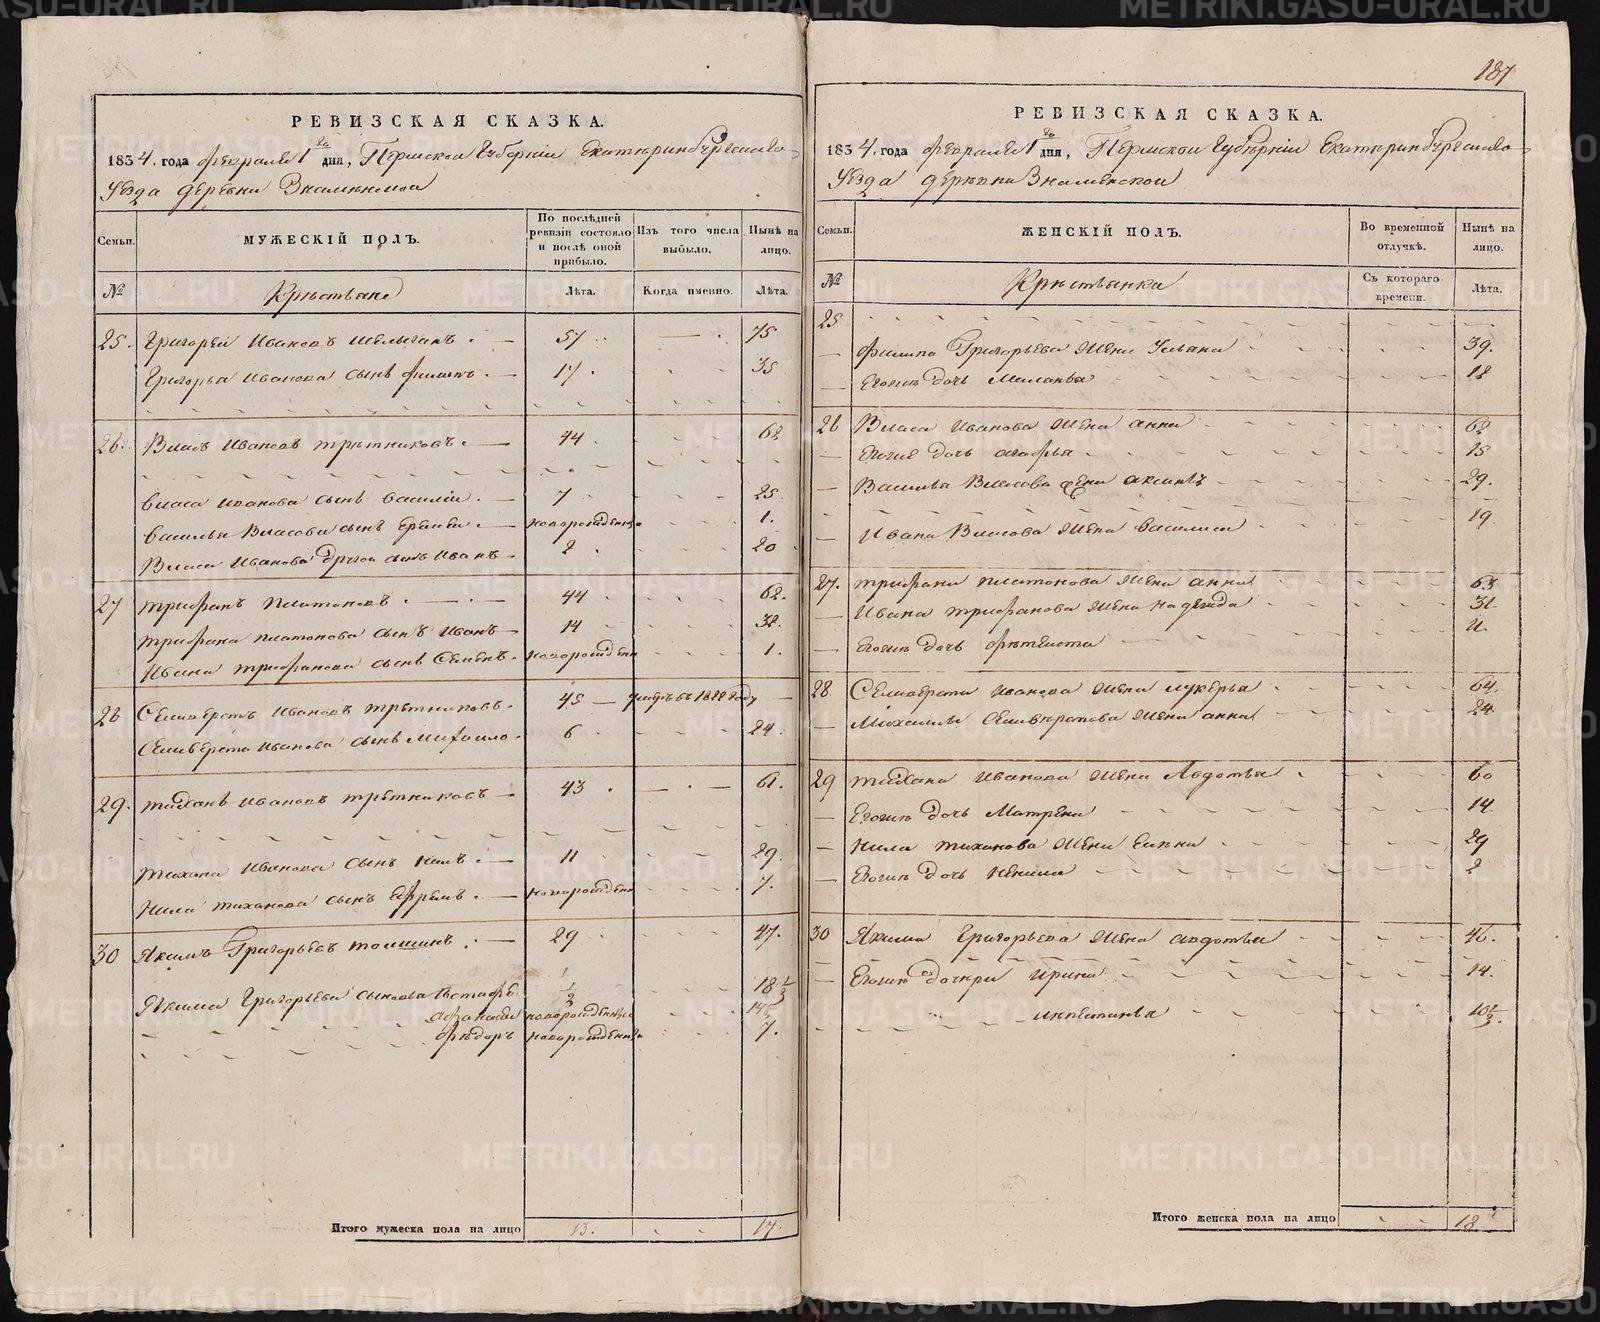 РЕВИЗСКАЯ СКАЗКА.
1834. года февраля 1го дня, Пермской Губернiи Екатеринбургскаго
Уезда деревни Знаменской
Семьи. МУЖЕСКIЙ ПОЛЪ. По послѣдней ревизiи состояло и послѣ оной прибыло. Изъ того числа выбыло. Нынѣ на лицо.
№ Крестьяне Лѣта. Когда имянно. Лѣта.
25. Григорей Ивановъ 57 75
Григорья Иванова сынъ Филипъ 17 35
26. Власъ Ивановъ Третниковъ 44 62
Власа Иванова сынъ Василiй 7 25
Василья Власова сынъ новорожденъ 1.
Власа Иванова другой сынъ Иванъ 2 20
27 Трифанъ Платоновъ 44 62.
Трифана Платонова сынъ Иванъ 14 32.
Ивана Трифанова сынъ Семенъ новорожден 1.
28 Селиверстъ Ивановъ Третниковъ 45 умеръ въ 1822 году
Селиверста Иванова сынъ Михайло 6 24.
29. Тиханъ Ивановъ Третниковъ 43 61.
Тихана Иванова сынъ Нилъ 11 29.
Нила Тиханова сынъ Ефремъ новорожден 7.
30 Якимъ Григорьевъ 29 47.
Якима Григорьева сыновья 1/2 18 1/2
Афанасей новорожденъ 14 1/2
Федоръ новорожденъ 7.
Итого мужеска пола на лицо 13. 17.
187
РЕВИЗСКАЯ СКАЗКА.
1834. года февраля 1го дня, Пермской Губернiи Екатеринбургскаго
Уезда деревни Знаменской
Семьи. ЖЕНСКIЙ ПОЛЪ. Во временной отлучкѣ. Нынѣ на лицо.
№ Крестьянки Съ котораго времени. Лѣта.
25
Филипа Григорьева жена Ульяна 39.
Егожъ дочь Маланья 12
26 Власа Иванова жена Анна 62
Егоже дочь Агафья 15
Василья Власова жена Аксинья 29.
Ивана Власова жена Василиса 19
27. Трифана Платонова жена Анна 63
Ивана Трифанова жена Надежда 31.
Егожъ дочь
28 Селиверста Иванова жена Лукерья 64.
Михаила Селиверстова жена Анна 24
29 Тихана Иванова жена Авдотья 60
Егожъ дочь Матрена 14.
Нила Тиханова жена 29
Егожъ дочь 2
30 Якима Григорьева жена Авдотья 46.
Егожъ дочери Ирина 14.
10 1/2.
Итого женска пола на лицо 18
METRIKI.GASO-URAL.RU